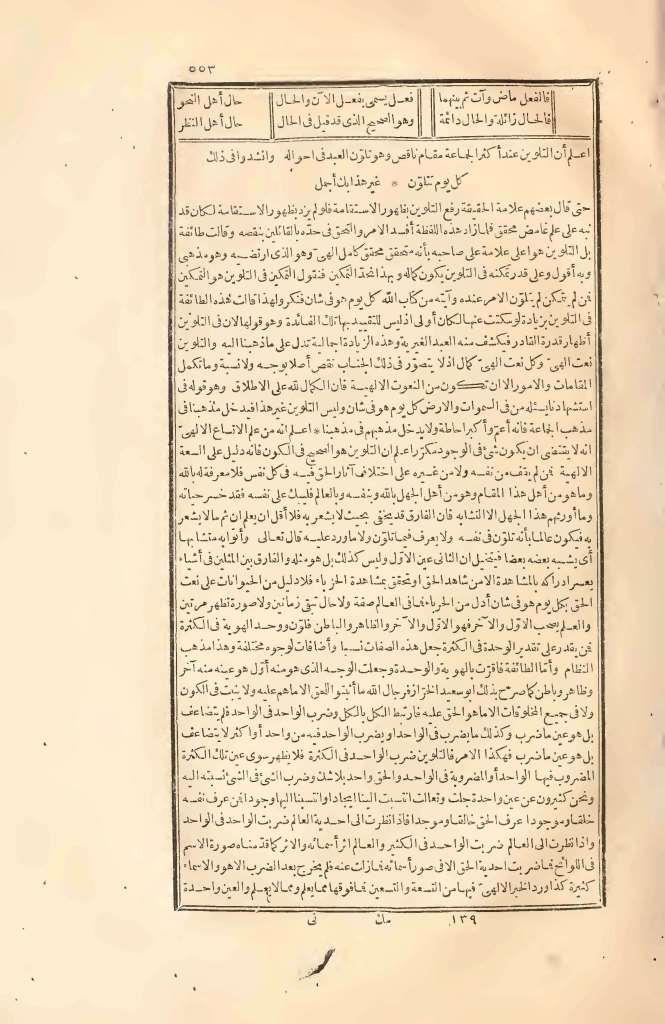 ٥٥٣
فالفعل ماض وآت ثم بينهما فعل يسمى بفعل الآن والحال حال أهل النحو
فالحال زائلة والحال دائمة وهو الصحيح الذى قد قيل فى الحال حال أهل النظر
اعلم أن التلوين عند أكثر الجماعة مقام ناقص وهو تلون العبد فى أحواله وأنشدوا فى ذلك
كل يوم تتلون * غير هذا بك أجمل
حتى قال بعضهم علامة الحقيقة رفع التلوين بظهور الاستقامة فلو لم يزد بظهور الاستقامة لكان قد
نبه على علم غامض محقق فلما زاد هذه اللفظة أفسد الامر والتحق فى حدّه بالقائلين بنقصه وقالت طائفة
بل التلوين هو أعلى علامة على صاحبه بأنه متحقق محقق كامل الهىّ وهو الذى ارتضيه وهو مذهبى
وبه أقول وعلى قدر تمكنه فى التلوين يكون كماله وبهذا نحدّ التمكين فنقول التمكين فى التلوين هو التمكين
فمن لم يتمكن لم يتلون الامر عنده وآيته من كتاب الله كل يوم هو فى شان فنكر ولهذا قالت هذه الطائفة
فى التلوين بزيادة لو سكتت عنها لكان أولى اذ ليس للتقييد بها تلك الفائدة وهو قولها لان فى التلوين
اظهار قدرة القادر فيكشف منه العبد الغيرية وهذه الزيادة اجمالية تدل على ما ذهبنا اليه والتلوين
نعت الهىّ وكل نعت الهىّ كمال اذ لا يتصوّر فى ذلك الجناب نقص أصلا بوجه ولا نسبة وما تكمل
المقامات والامور الا ان تكون من النعوت الالهية فان الكمال لله على الاطلاق وهو قوله فى
استشهادنا يسئله من فى السموات والارض كل يوم هو فى شان وليس التلوين غير هذا فيدخل مذهبنا فى
مذهب الجماعة فانه أعمّ وأكبر احاطة ولا يدخل مذهبهم فى مذهبنا * اعلم انه من علم الاتساع الالهىّ
انه لا يقتضى ان يكون شئ فى الوجود مكرّر اعلم ان التلوين هو الصحيح فى الكون فانه دليل على السعة
الالهية فمن لم يقف من نفسه ولا من غيره على اختلاف آثار الحق فيه فى كل نفس فلا معرفة له بالله
وما هو من أهل هذا المقام وهو من أهل الجهل بالله وبنفسه وبالعالم فليبك على نفسه فقد خسر حياته
وما أورثهم هذا الجهل الا التشابه فان الفارق قد يخفى بحيث لا يشعر به فلا أقل ان يعلم ان ثم ما لا يشعر
به فيكون عالما بأنه تلون فى نفسه ولا يعرف فيما تلون ولا ما ورد عليه قال تعالى وأتوا به متشابها
أى يشبه بعضه بعضا فيتخيل ان الثانى عين الاوّل وليس كذلك بل هو مثله والفارق بين المثلين فى أشياء
يعسر ادراكه بالمشاهدة الا من شاهد الحق أو تحقق بمشاهدة الحرباء فلا دليل من الحيوانات على نعت
الحق بكل يوم هو فى شان أدل من الحرباء فما فى العالم صفة ولا حال تبقى زمانين ولا صورة تظهر مرتين
والعلم يصحب الاوّل والآخر فهو الاوّل والآخر والظاهر والباطن فلوّن ووحد الهوية فى الكثرة
فمن يقدر على تقدير الوحدة فى الكثرة جعل هذه الصفات نسبا واضافات لوجوه مختلفة وهذا مذهب
النظام وأما الطائفة فأقرّت بالهوية والوحدة وجعلت الوجه الذى هو منه أوّل هو عينه منه آخر
وظاهر وباطن كما صرح بذلك ابو سعيد الخراز فرجال الله ما أثبتوا للحق الا ما هم عليه ولا يثبت فى الكون
ولا فى جميع المخلوقات الا ما هو الحق عليه فارتبط الكل بالكل وضرب الواحد فى الواحد فلم يتضاعف
بل هو عين ما ضرب وكذلك ما يضرب فى الواحد او يضرب الواحد فيه من واحد أو أكثر لا يتضاعف
بل هو عين ما ضرب فهكذا الامر فالتلوين ضرب الواحد فى الكثرة فلا يظهر سوى عين تلك الكثرة
المضروب فيها الواحد أو المضروبة فى الواحد والحق واحد بلا شك وضرب الشئ فى الشئ نسبته اليه
ونحن كثيرون عن عين واحدة جلت وتعالت انتسبت الينا ايجادا وانتسبنا اليها وجودا فمن عرف نفسه
خلقا وموجودا عرف الحق خالقا وموجدا فاذا نظرت الى احدية العالم ضربت الواحد فى الواحد
واذا نظرت الى العالم ضربت الواحد فى الكثير والعالم اثر أسمائه والاثر كما قدّمناه صورة الاسم
فى اللوائح فما ضربت احدية الحق الا فى صور أسمائه فما زلت عنه فلم يخرج بعد الضرب الا هو والاسماء
كثيرة كذا ورد الخبر الالهىّ فيها من التسعة والتسعين فما فوقها مما يعلم ومما لا يعلم والعين واحدة
١٣٩ مك نى